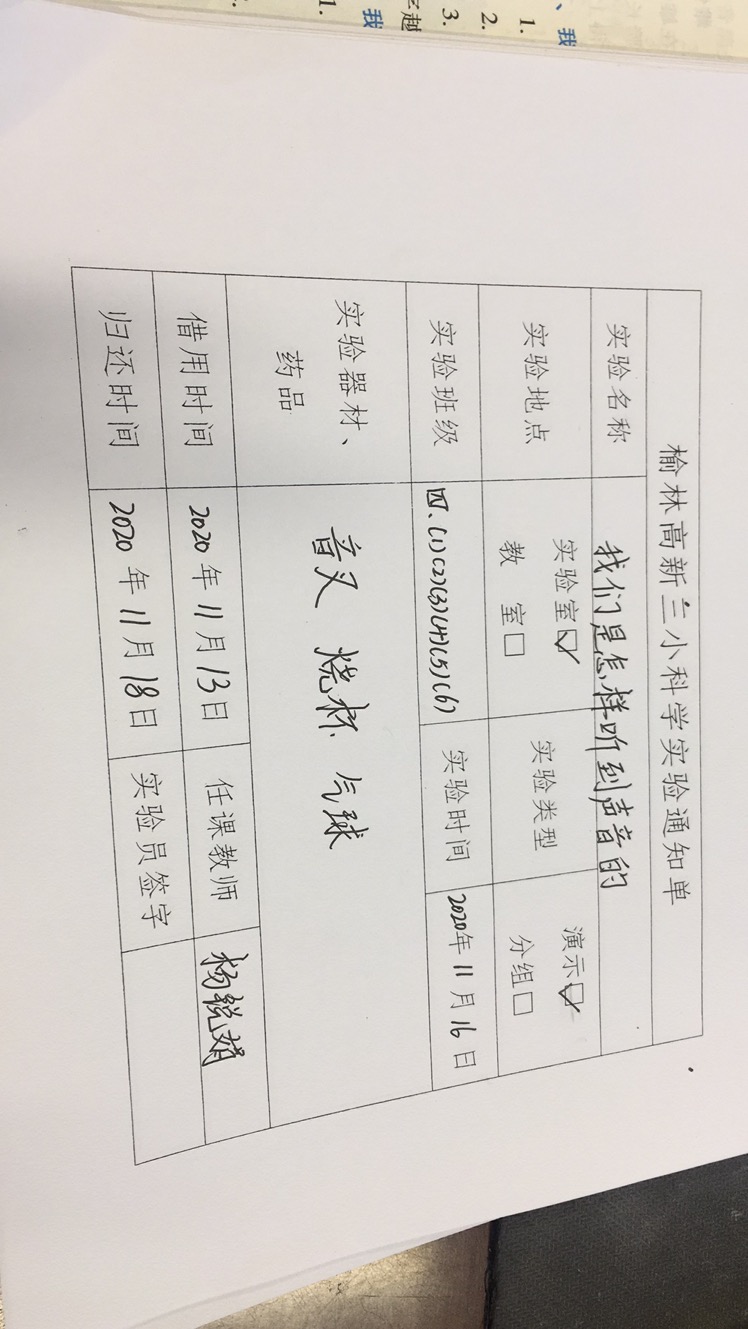 榆林高新三小科学实验通知单
实验名称 我们是怎样听到声音的
实验地点 实验室☑ 教 室□ 实验类型 演示☑ 分组□
实验班级 四、(1)(2)(3)(4)(5)(6) 实验时间 2020年11月16日
实验器材、药品 音叉 烧杯 气球
借用时间 2020年11月13日 任课教师 杨锐娟
归还时间 2020年11月18日 实验员签字
、我
1.
2.
3.
我
1.